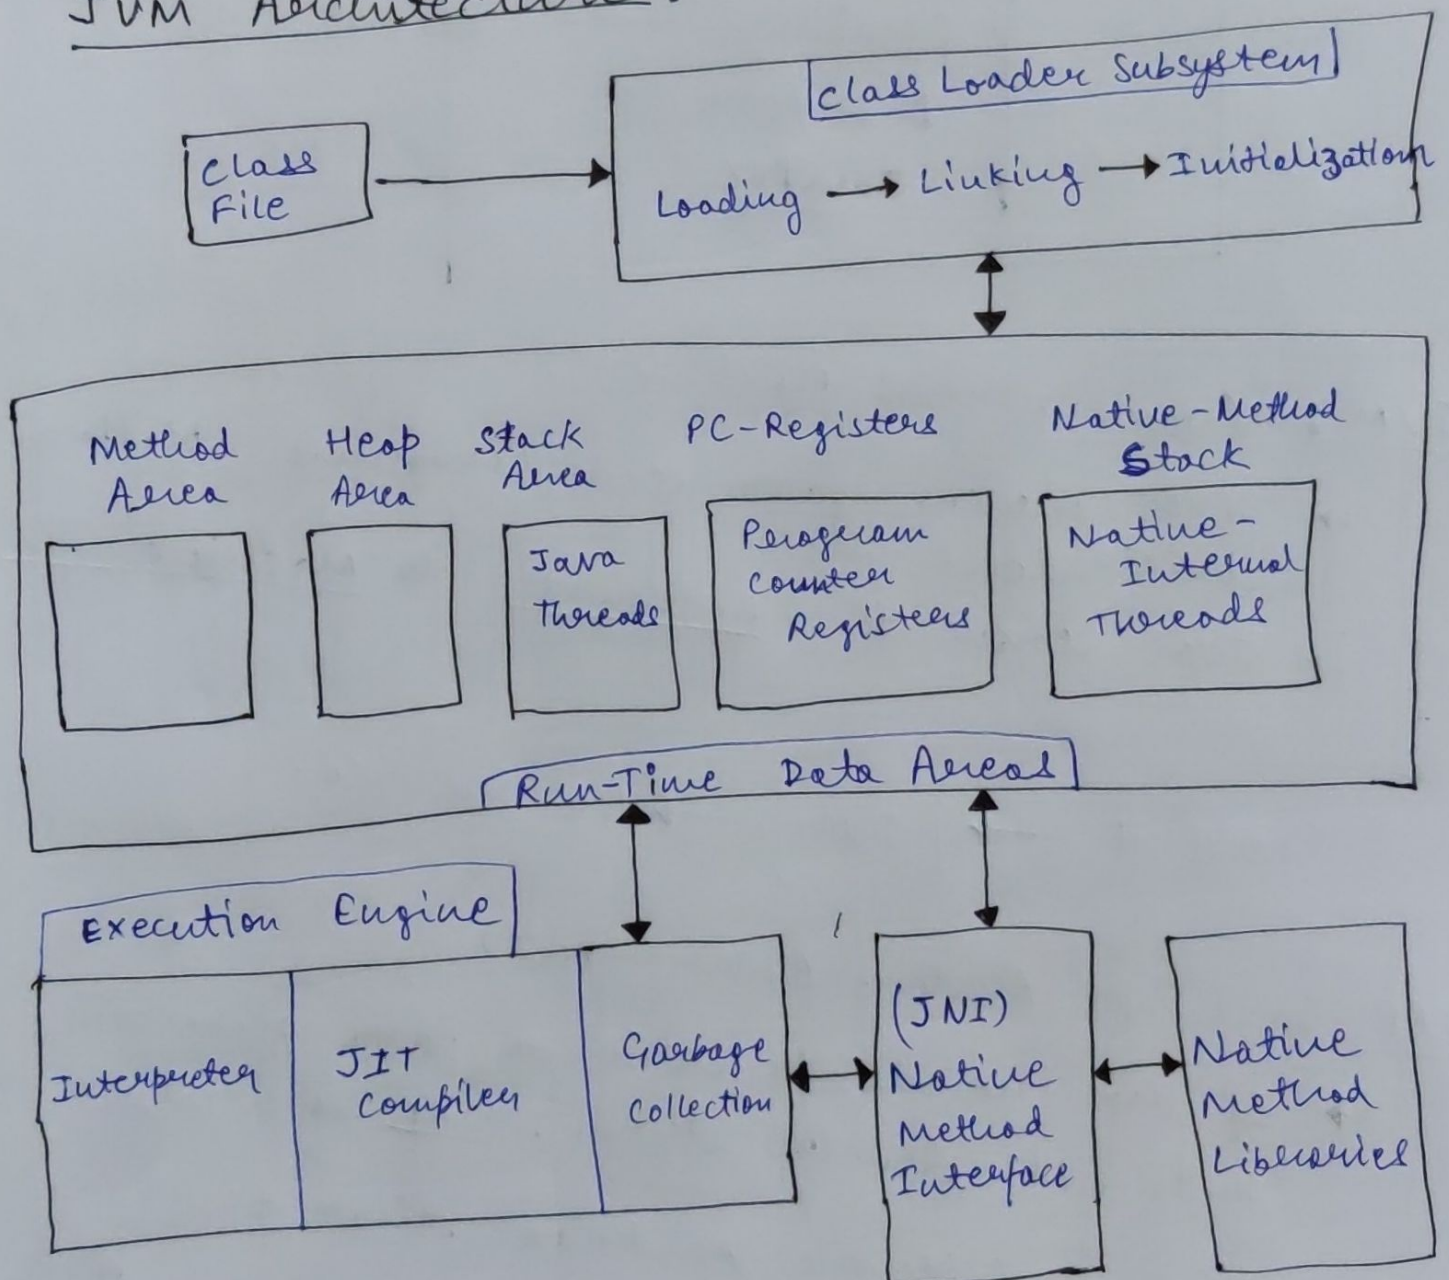 JVM Architecture:
Class Loader Subsystem
Class
File
Loading → Linking → Initialization
Method
Area
Heap
Area
Stack
Area
PC-Registers
Native-Method
Stack
Java
Threads
Program
Counter
Registers
Native-
Internal
Threads
Run-Time Data Areas
Execution Engine
Interpreter
JIT
Compiler
Garbage
Collection
(JNI)
Native
Method
Interface
Native
Method
Libraries